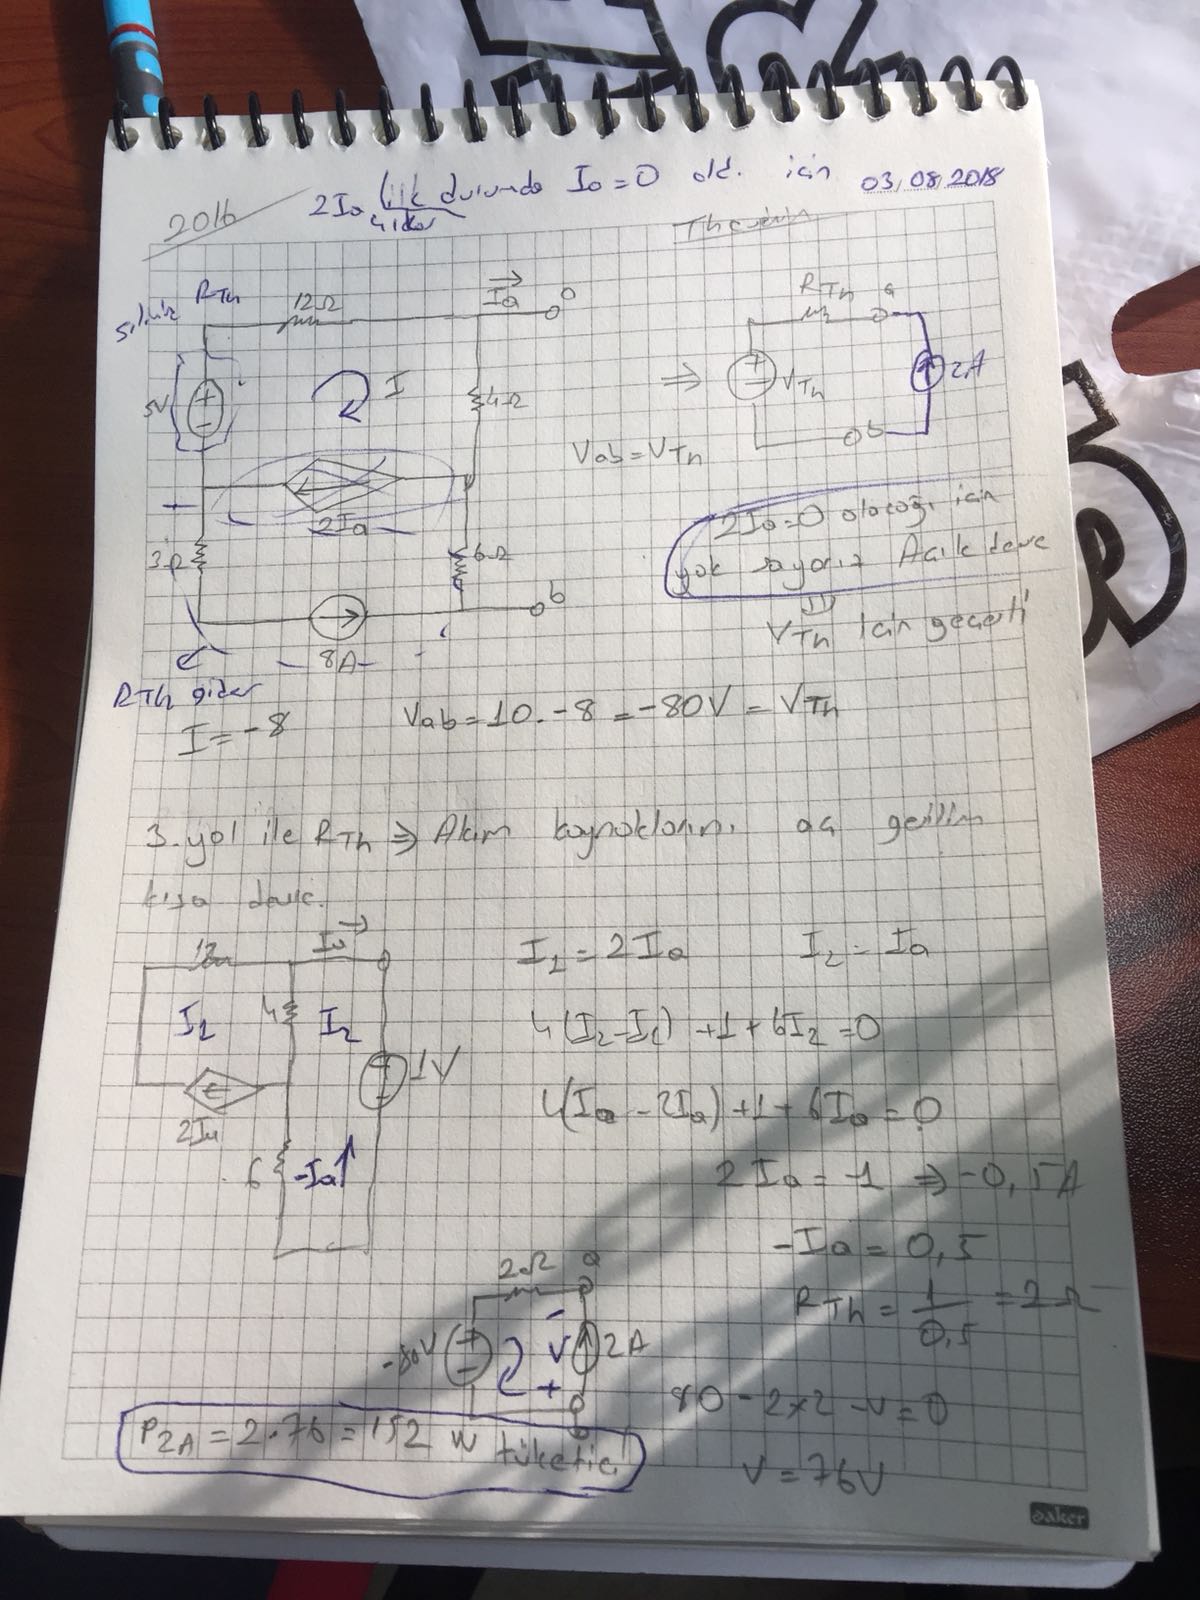 2016
2I₀ ilk durumda I₀=0 old. için
gider
03.08.2018
Thevenin
siliniz RTh
12Ω
Ia
a
5V
I
4Ω
2Ia
3Ω
6Ω
8A
b
RTh gider
RTh a
VTh
2A
b
Vab=VTh
2Ia=0 olacağı için
yok sayarız Açık devre
VTh için geçerli
I=-8
Vab=10.-8=-80V=VTh
3. yol ile RTh ⇒ Akım kaynaklarını aç gerilim
kısa devre.
12
Ia
I₁
4
I₂
1V
2Ia
6
-Ia
I₁=2Ia I₂=Ia
4(I₂-I₁)+1+6I₂=0
4(Ia-2Ia)+1+6Ia=0
2Ia=-1 ⇒ -0,5A
-Ia=0,5
RTh=1/0,5=2Ω
2Ω
a
-80V
V
2A
80-2×2-V=0
V=76V
P2A=2.76=152 W tüketici